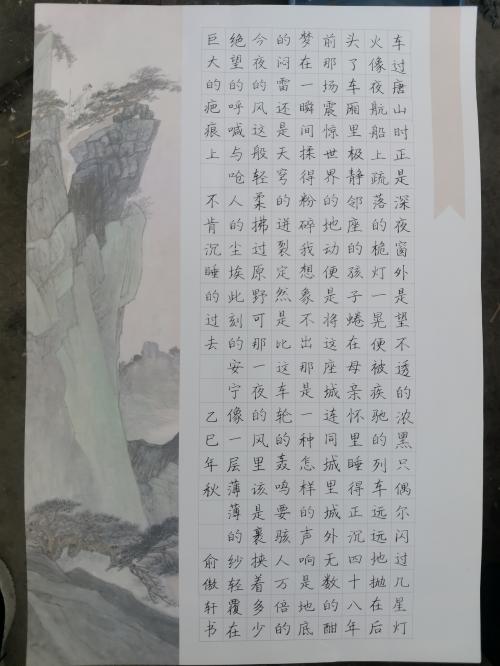 车过唐山时正是深夜窗外是望不透的浓黑只偶尔闪过几星灯
火像夜航船上疏落的桅灯一晃便被疾驰的列车远远地抛在后
头了车厢里极静邻座的孩子蜷在母亲怀里睡得正沉四十八年
前那场震惊世界的地动便是将这座城连同城里城外无数的酣
梦在一瞬间揉得粉碎我想象不出那是一种怎样的声响是地底
的闷雷还是天穹的迸裂定然是比这车轮的轰鸣要骇人万倍的
今夜的风这般轻柔的拂过原野可那一夜的风里该是裹挟着多少
绝望的呼喊与呛人的尘埃此刻的安宁像一层薄薄的纱轻覆在
巨大的疤痕上 不肯沉睡的过去 乙巳年秋 俞傲轩书